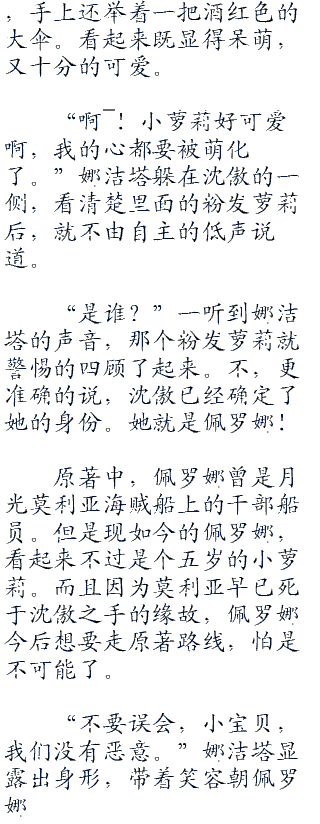 ，手上还举着一把酒红色的
大伞。看起来既显得呆萌，
又十分的可爱。
“啊¯！小萝莉好可爱
啊，我的心都要被萌化
了。”娜洁塔躲在沈傲的一
侧，看清楚里面的粉发萝莉
后，就不由自主的低声说
道。
“是谁？”一听到娜洁
塔的声音，那个粉发萝莉就
警惕的四顾了起来。不，更
准确的说，沈傲已经确定了
她的身份。她就是佩罗娜！
原著中，佩罗娜曾是月
光莫利亚海贼船上的干部船
员。但是现如今的佩罗娜，
看起来不过是个五岁的小萝
莉。而且因为莫利亚早已死
于沈傲之手的缘故，佩罗娜
今后想要走原著路线，怕是
不可能了。
“不要误会，小宝贝，
我们没有恶意。”娜洁塔显
露出身形，带着笑容朝佩罗
娜